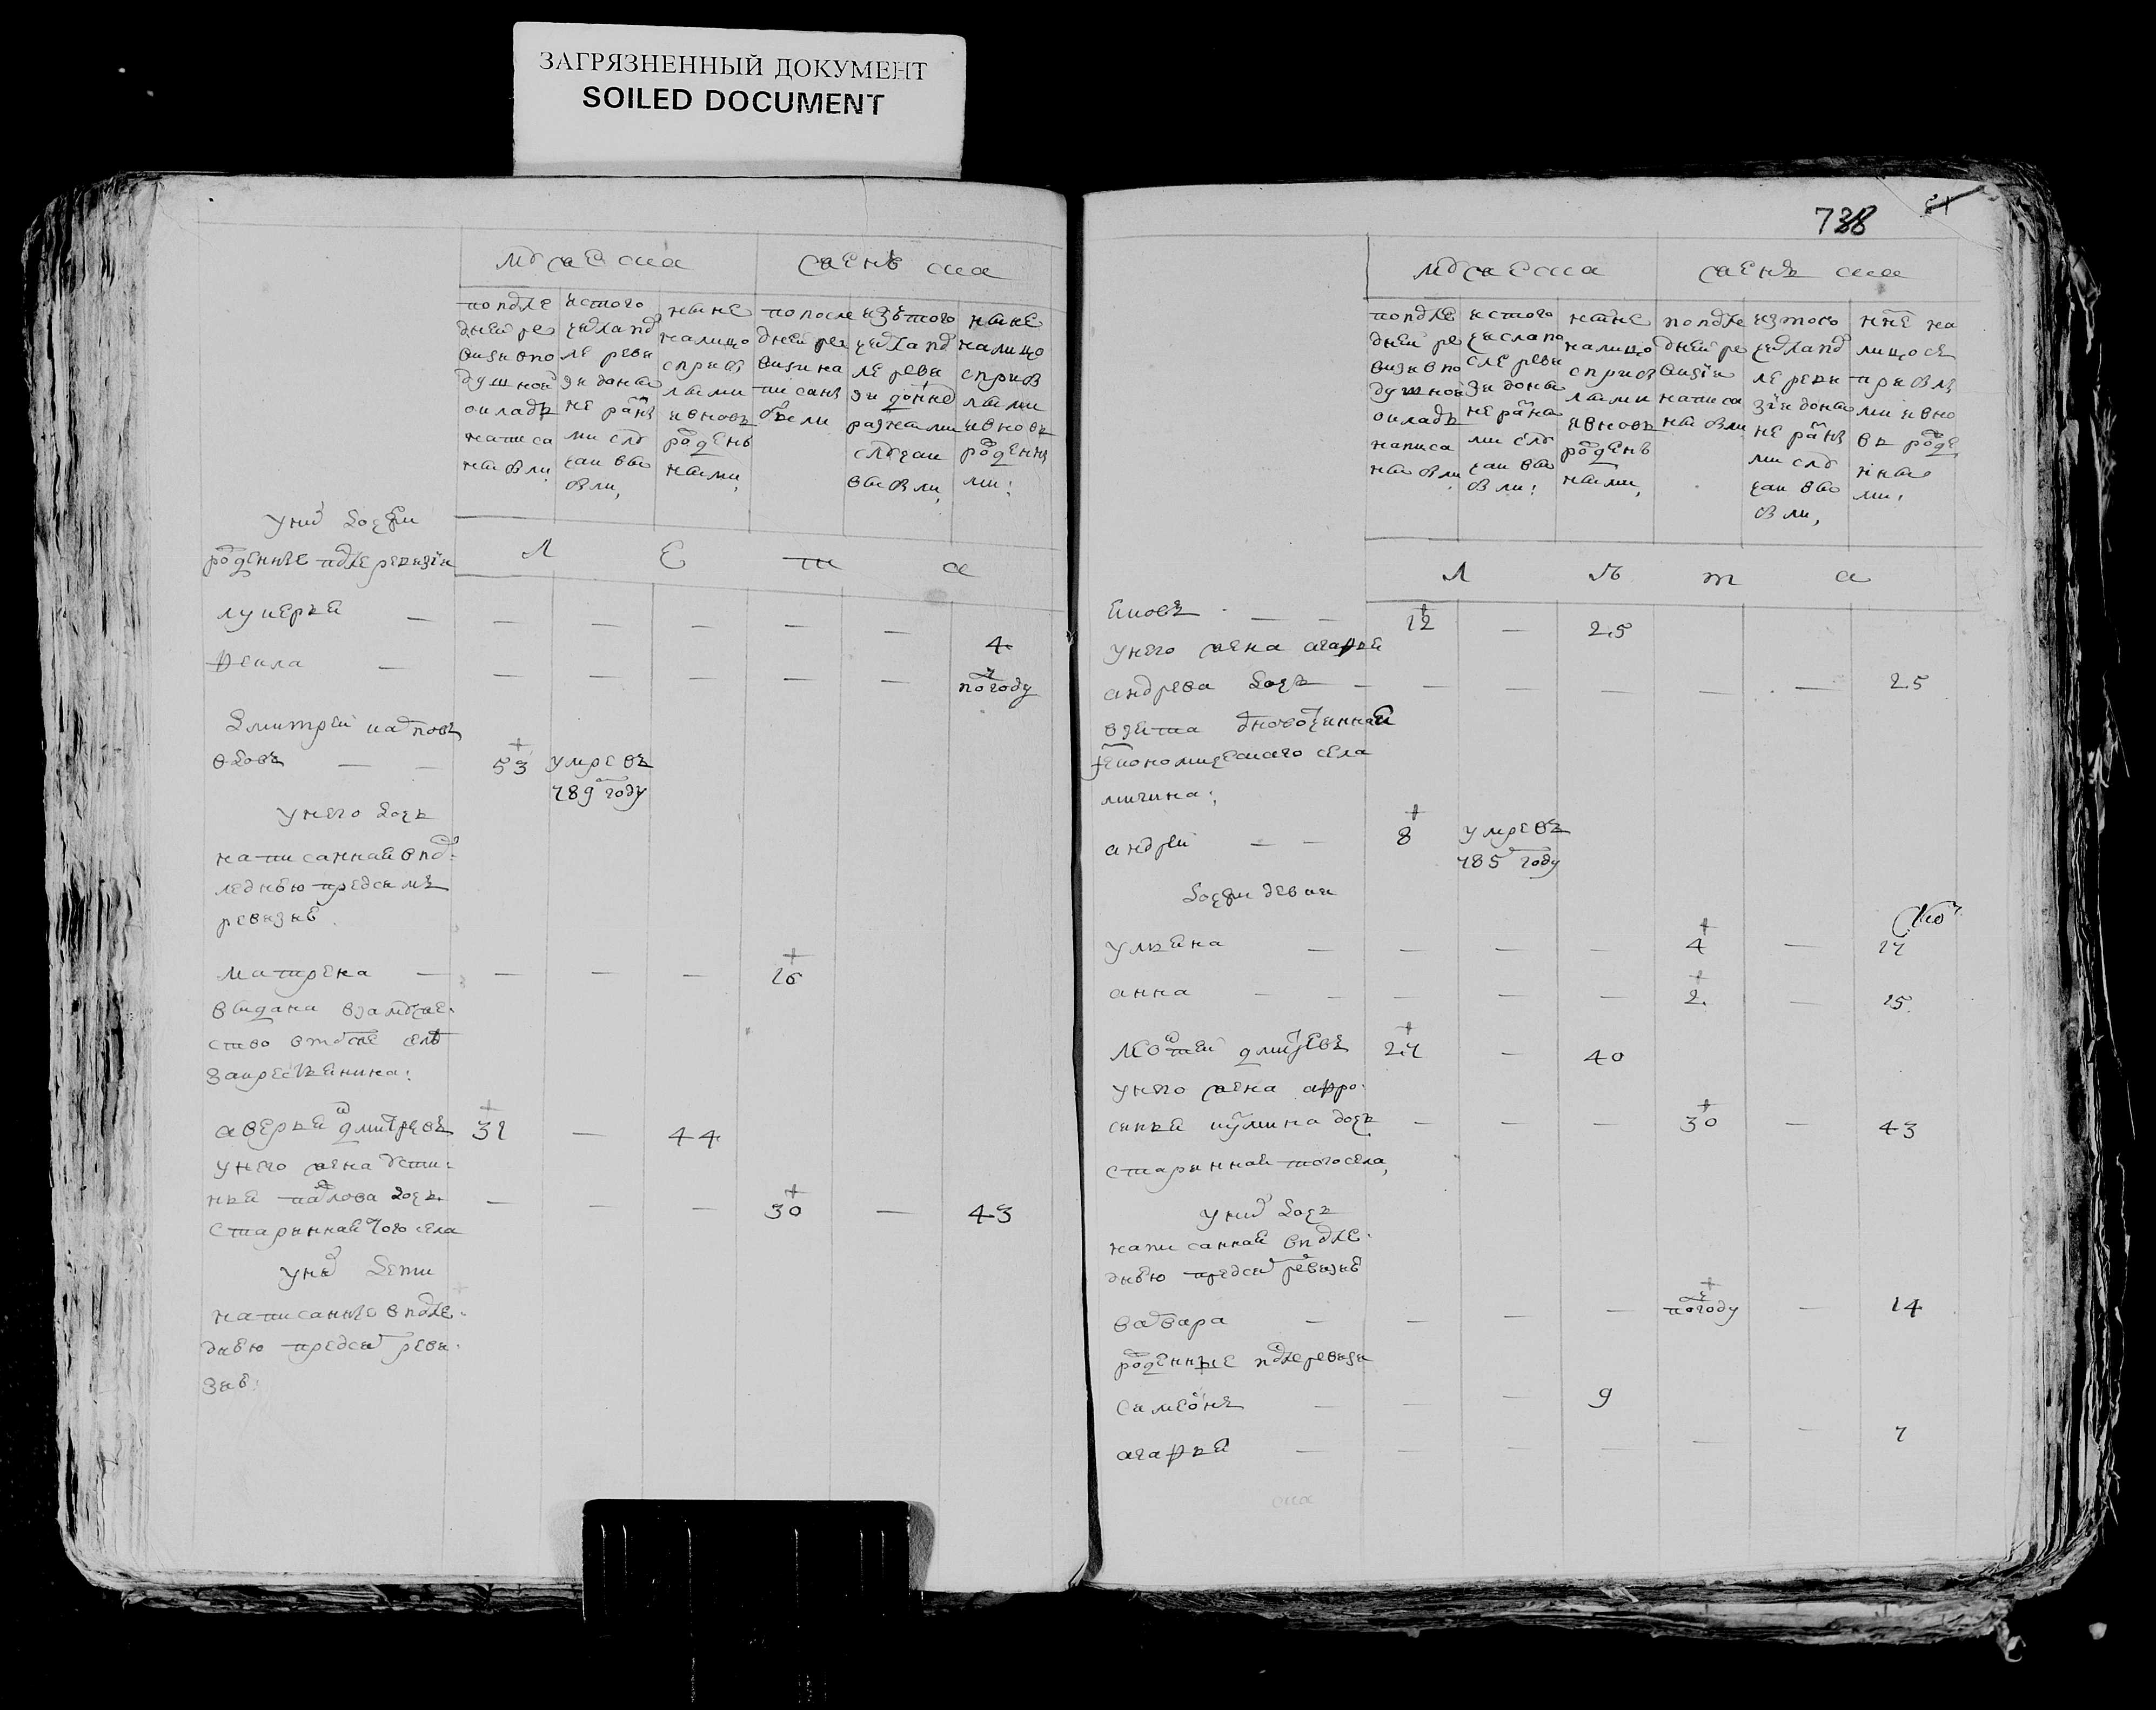 ЗАГРЯЗНЕННЫЙ ДОКУМЕНТ
SOILED DOCUMENT
мужеска женска
по после
дней ре
визи в по
душной
окладъ
написа
ны были
ис того
числа пос
ле реви
зи до ны
не разн
ми слу
чаи вы
были,
ныне
налицо
с прибы
лыми
и вновь
рожденъ
ными,
по после
дней ре
визи на
писаны
были
изъ того
числа пос
ле реви
зи до нне
разными
случаи
выбыли,
ныне
налицо
с приб
лыми
и вновь
рожденны
ми:
у них дочери
рожденые после ревизiи
л е т а
лукерья — — — — — — 4
фекла — — — — — — полгоду
дмитрей карповъ
вдовъ — — 53 умре въ
789 году
у него дочь
написанная в пос:
леднею пред симъ
ревизие.
матрена — — — — 16
выдана в замуже:
ство в томже селе
за крестьянина:
аверьян дмитревъ 31 — 44
у него жена усти:
нья павлова дочь — — — 30 — 43
старинная того села
у них дети
написанные в после:
днею пред сим реви:
зие:
738 81
мужеска женска
по после
дней ре
визи в по
душной
окладъ
написа
ны были
ис того
числа по
сле реви
зи до ны
не разны
ми слу
чаи вы
были:
ныне
налицо
с приб
лыми
и вновь
рожденъ
ными,
по после
дней ре
визiи
написа
ны были
из того
числа пос
ле реви
зiи до ны
не разн
ми слу
чаи вы
были,
нне на
лицо съ
прибыл
ми и вно
вь рожде
нны
ми:
л ѣ т а
яковъ — — 12 — 25
у него жена агафья
андрева дочь — — — — — — 25
взята
економическаго села
мичина:
андрей — — 8 умре въ
785 году
дочери девки
ульяна — — — — 4 — 17
анна — — — — — 2 — 15
дмитревъ 27 — 40
у него жена афро:
синья кузмина дочь — — — 30 — 43
старинная того села,
у них дочь
написанная в после:
днею пред сим ревизие
варвара — — — — полгоду — 14
рожденные после ревизи
симеонъ — — — 9
агафья — — — — — — 7